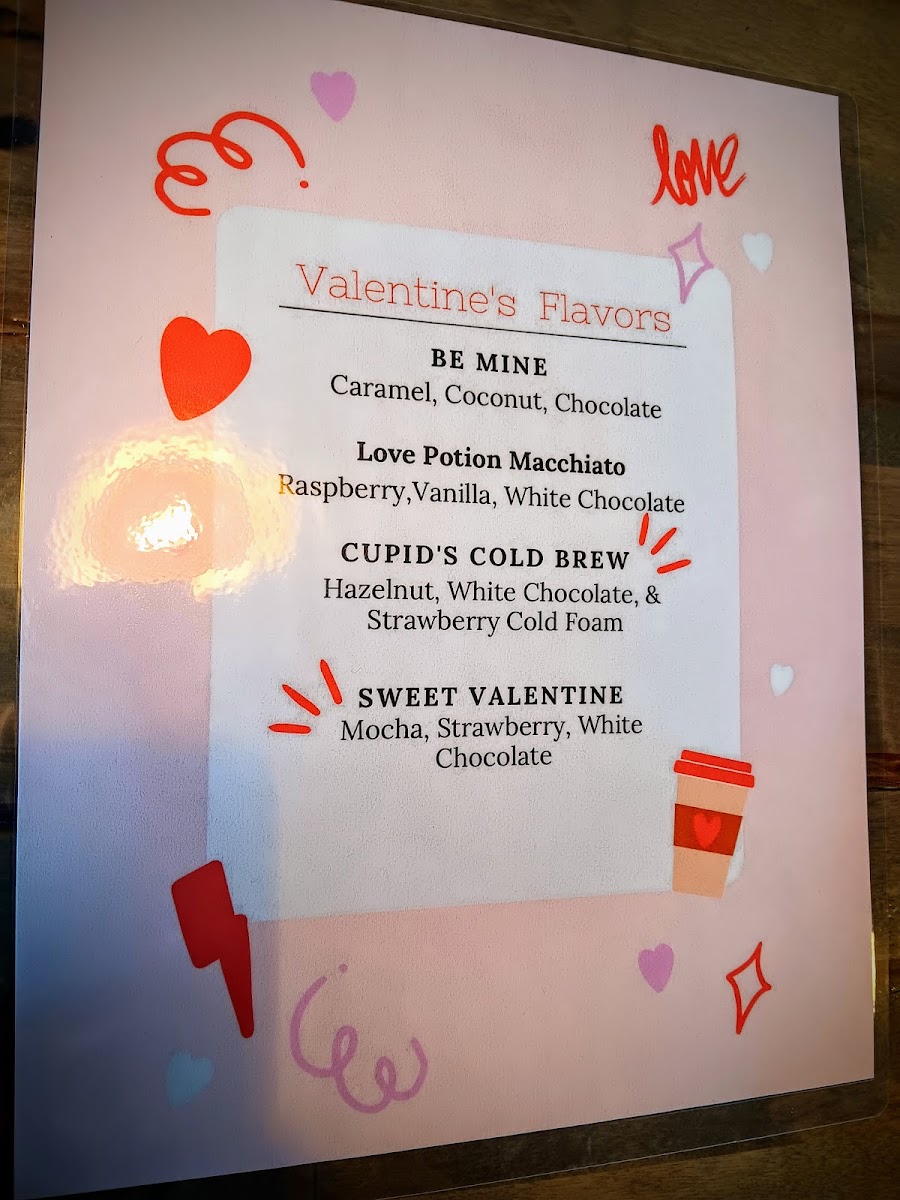 love
Valentine's Flavors
BE MINE
Caramel, Coconut, Chocolate
Love Potion Macchiato
Raspberry,Vanilla, White Chocolate
CUPID'S COLD BREW
Hazelnut, White Chocolate, &
Strawberry Cold Foam
SWEET VALENTINE
Mocha, Strawberry, White
Chocolate